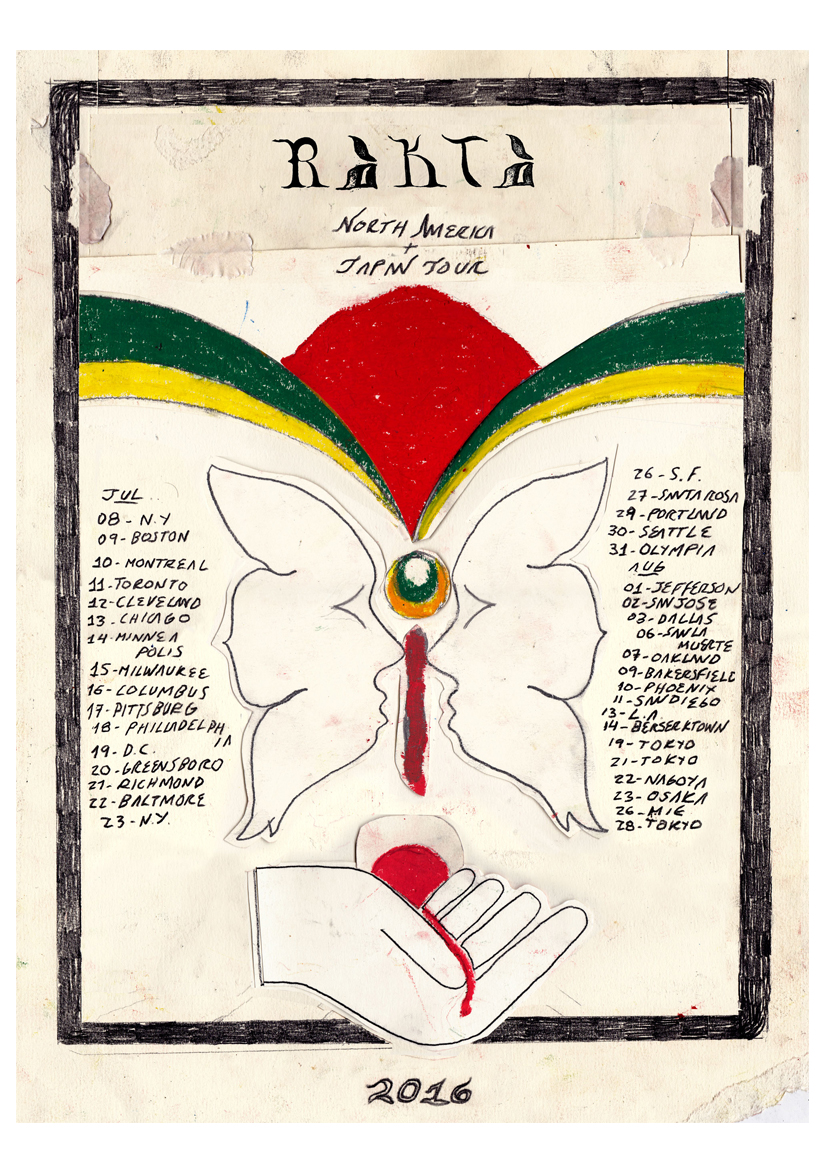 RAKTA
NORTH AMERICA
+
JAPAN TOUR
JUL..
08 - N.Y
09 - BOSTON
10 - MONTREAL
11 - TORONTO
12 - CLEVELAND
13 - CHICAGO
14 - MINNEA
POLIS
15 - MILWAUKEE
16 - COLUMBUS
17 - PITTSBURG
18 - PHILADELPH
IA
19 - D.C.
20 - GREENSBORO
21 - RICHMOND
22 - BALTIMORE
23 - N.Y.
26 - S.F.
27 - SANTA ROSA
29 - PORTLAND
30 - SEATTLE
31 - OLYMPIA
AUG
01 - JEFFERSON
02 - SAN JOSE
03 - DALLAS
06 - SANTA
MUERTE
07 - OAKLAND
09 - BAKERSFIELD
10 - PHOENIX
11 - SAN DIEGO
13 - L.A.
14 - BERSERKTOWN
19 - TOKYO
21 - TOKYO
22 - NAGOYA
23 - OSAKA
26 - MIE
28 - TOKYO
2016